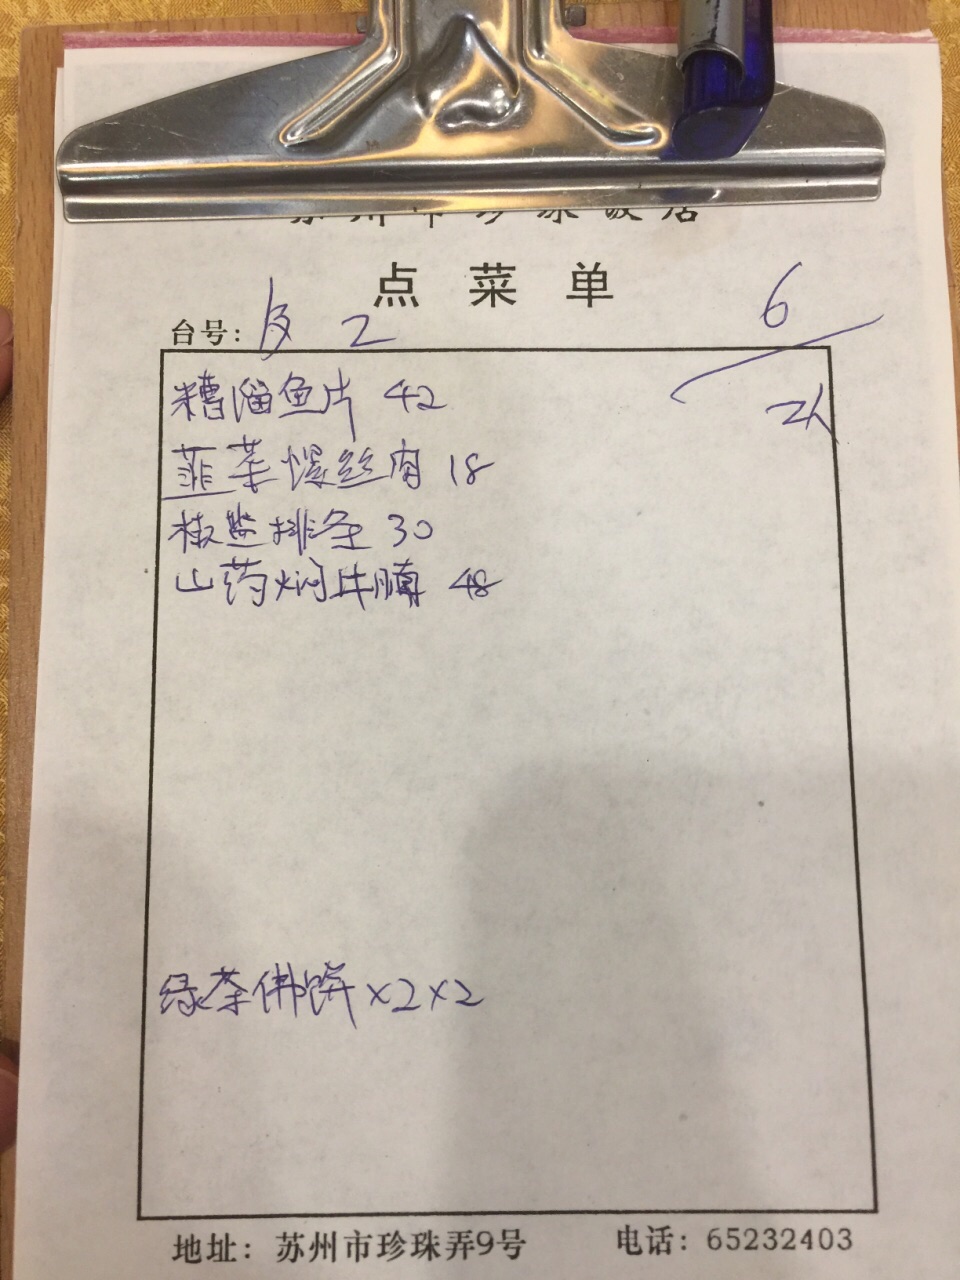 苏州市珍珠饭店
点菜单
6
台号: 2
2人
糟溜鱼片 42
韭菜螺丝肉 18
椒盐排条 30
山药焖牛腩 48
绿茶佛饼×2×2
地址: 苏州市珍珠弄9号 电话: 65232403